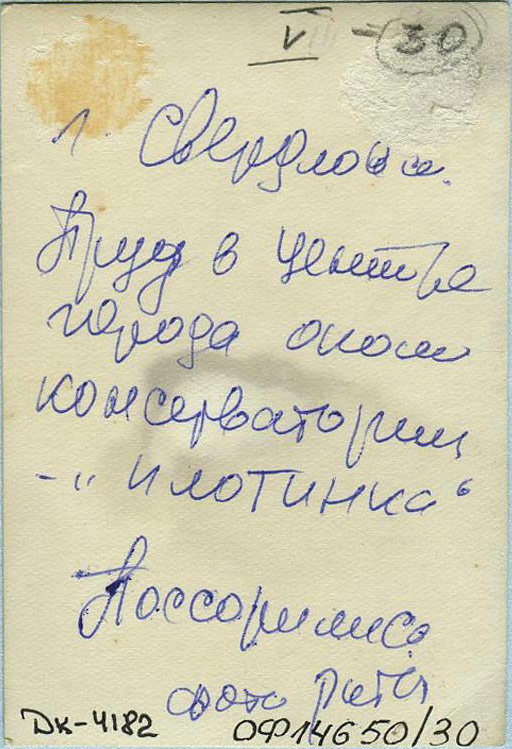 V - 30
г. Свердловск.
Пруд в центре
города около
консерватории
-"Плотинка"
Поссорились
фото Риты
ДК-4182 ОФ14650/30